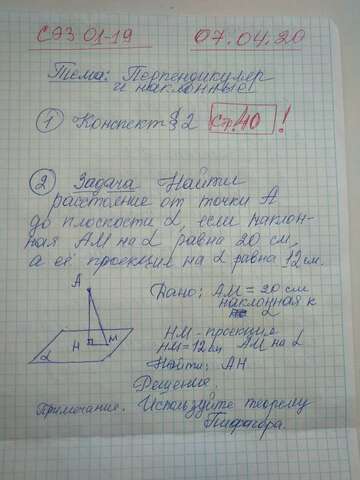 СЭЗ 01-19 07.04.20
Тема: Перпендикуляр
и наклонные!
① Конспект § 2 стр. 40 !
② Задача Найти
расстояние от точки А
до плоскости α, если наклон-
ная АМ на α равна 20 см,
а её проекция на α равна 12 см.
А
Н М
α
Дано: АМ = 20 см
наклонная к
α
НМ - проекция
НМ = 12 см АМ на α
Найти: АН
Решение.
Примечание. Используйте теорему
Пифагора.